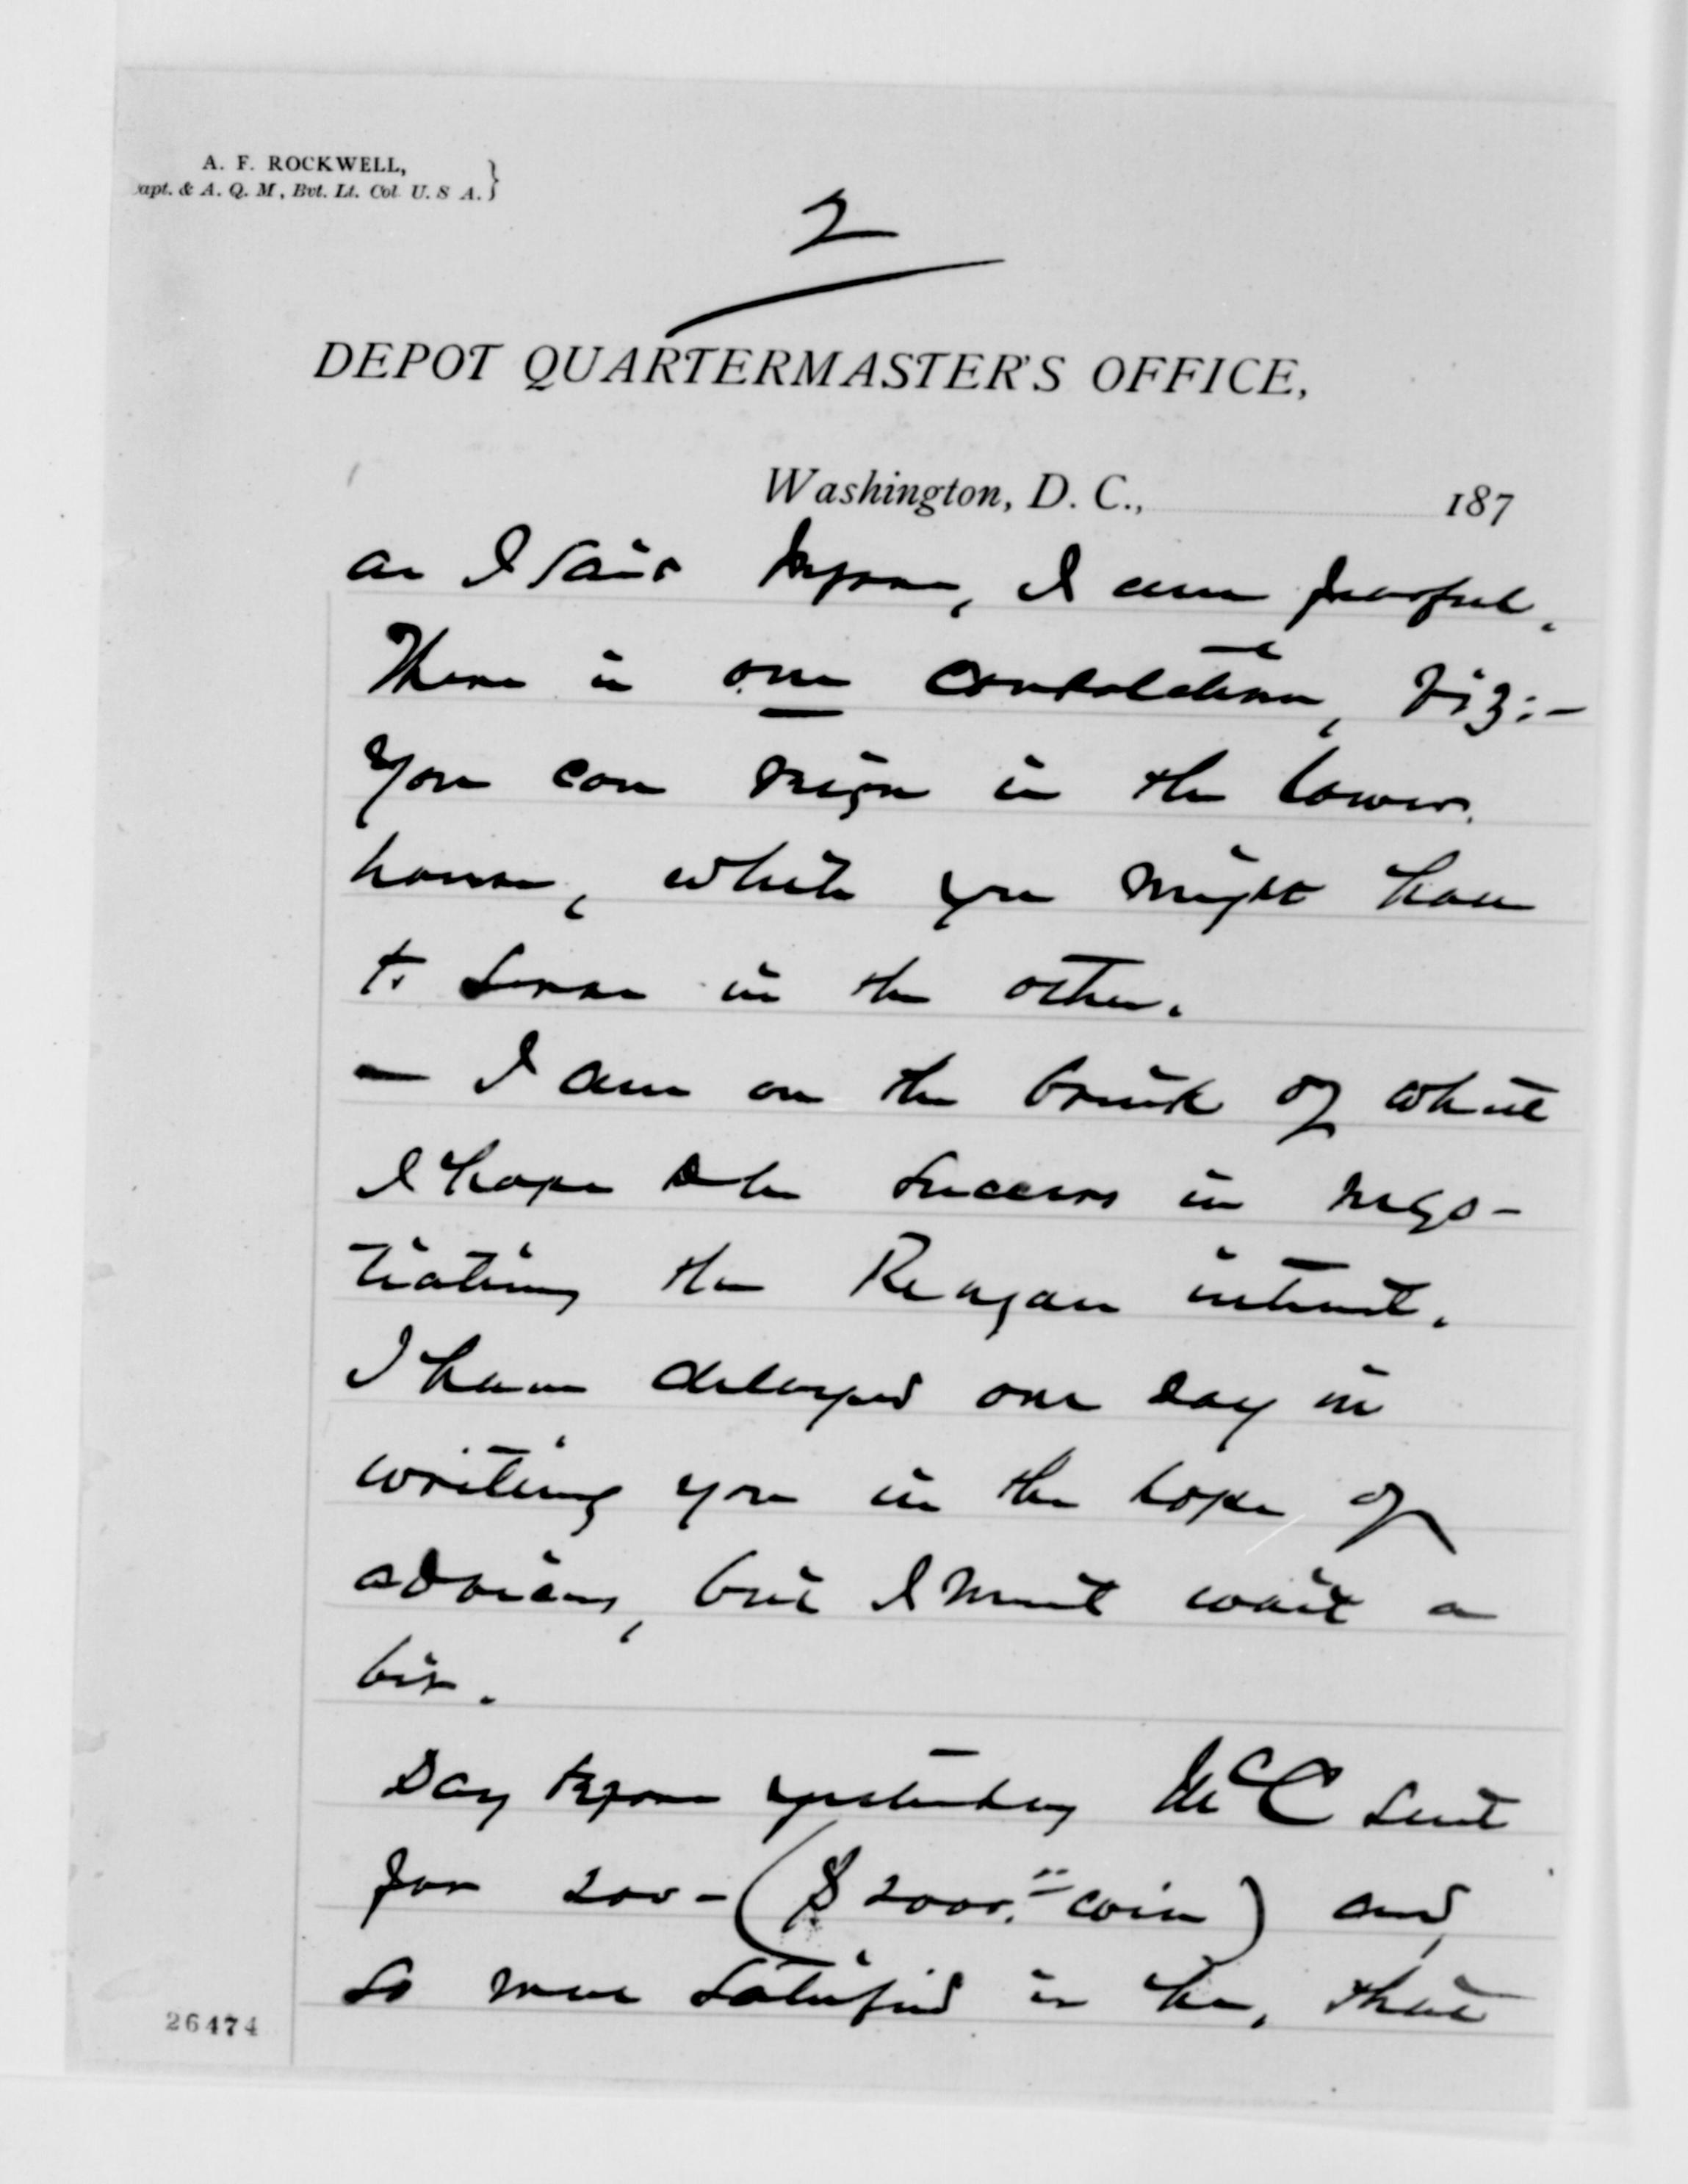 A. F. ROCKWELL,
apt. & A. Q. M, Bvt. Lt. Col. U. S A. }
2
DEPOT QUARTERMASTER'S OFFICE,
Washington, D. C., 187
as I said before, I am fearful.
There is one consolation, viz:-
You can reign in the lower
house, while you might have
to serve in the other.
— I am on the brink of what
I hope to be success in nego-
tiating the Reagan interest.
I have delayed one day in
writing you in the hope of
advices, but I must wait a
bit.
Day before yesterday McC sent
for 200 - ($2000.00 coin) and
so well satisfied is he, that
26474